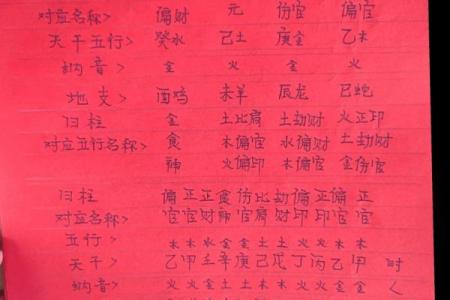 对应名称> 偏财 元 伤官 偏官
天干五行> 癸水 己土 庚金 乙木
纳音> 金 火 金 火
地支> 酉鸡 未羊 辰龙 巳蛇
归柱 金 土比肩 土劫财 火正印
对应五行名称> 食 木偏官 水偏财 土劫财
神 火偏印 木偏官 金伤官
归柱 偏正正食伤比劫偏正偏正
对应名称> 官官财神官肩财印印官官
五行> 木木水金金土土火火木木
天干> 乙甲壬辛庚己戊丁丙乙甲 时
纳音> 火火火土土火火金金